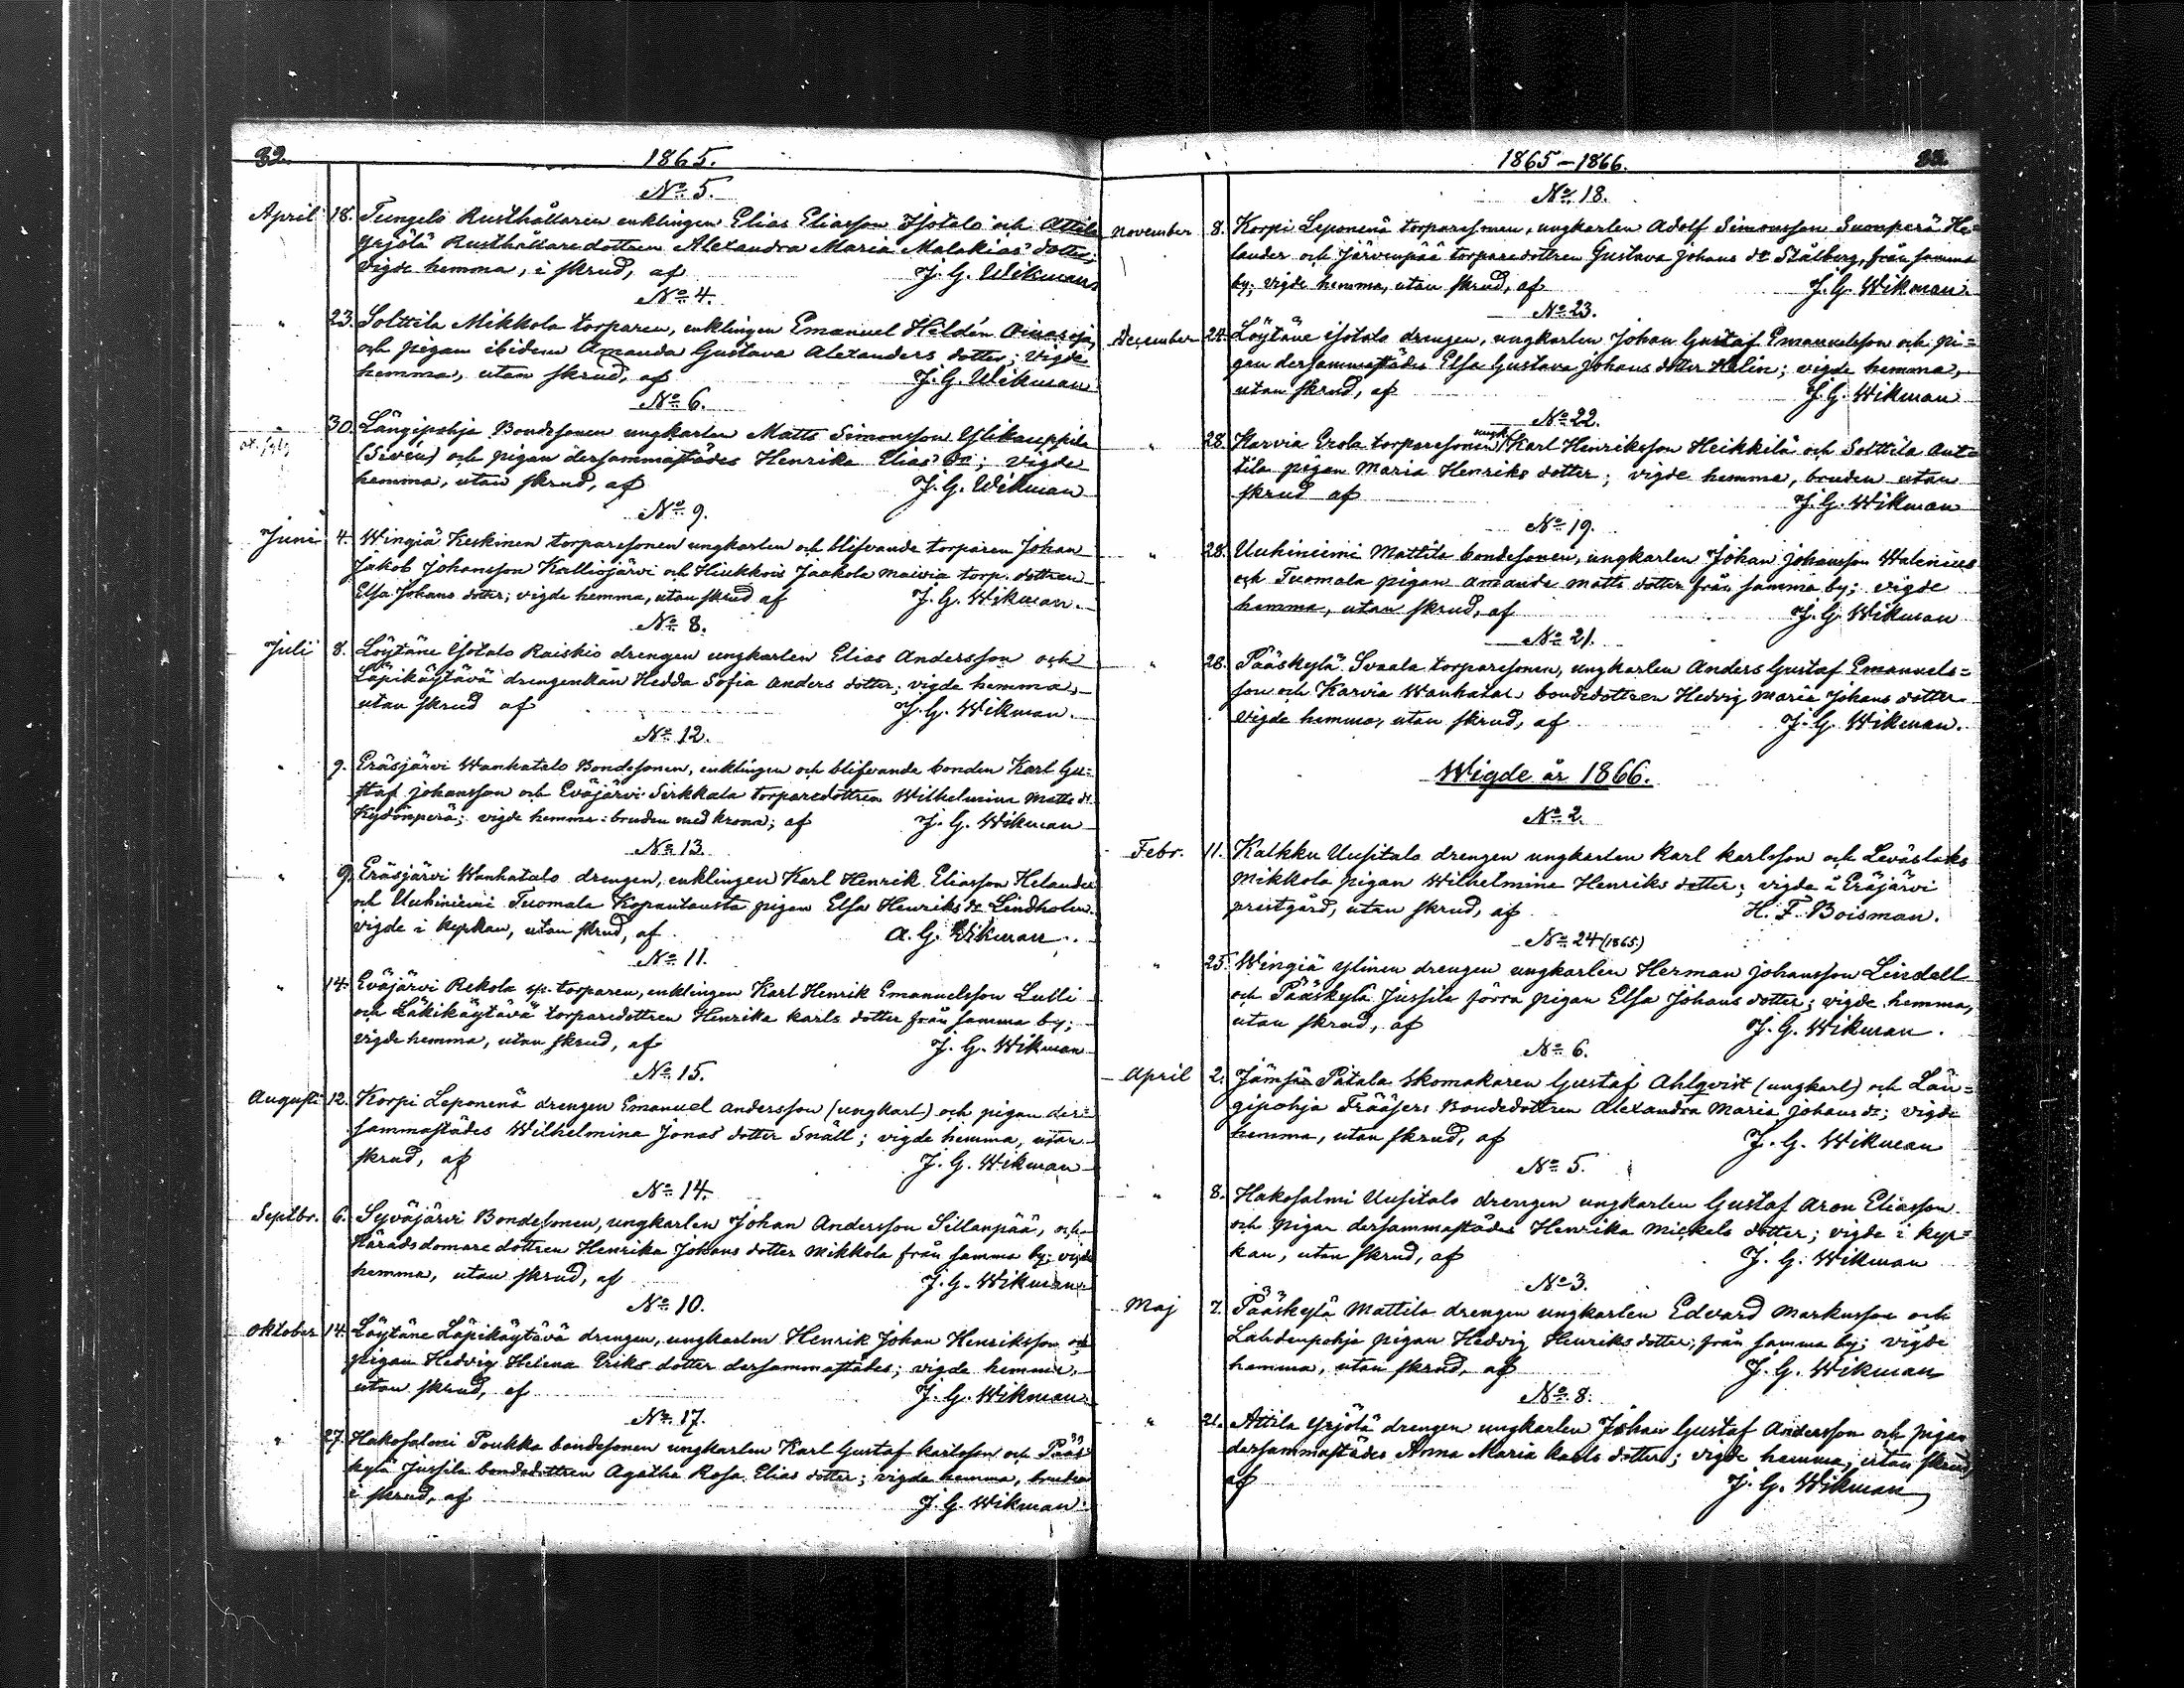 32.
1865.
No 5.
April 18. Tungelo Rusthållaren enklingen Elias Eliasson Isotalo och Attila
Yrjölä Rusthållaredottren Alexandra Maria Malakias dotter;
vigde hemma, i skrud, af J. G. Wikman
No 4.
" 23. Solttila Mikkola torparen, enklingen Emanuel Heldén
och pigan ibidem Amanda Gustava Alexanders dotter; vigde
hemma, utan skrud, af J. G. Wikman
No 6.
" 30. Längipohja Bondesonen ungkarlen Matts Simonsson Ylikauppila
(Sivén) och pigan dersammastädes Henrika Elias dr; vigde
hemma, utan skrud, af J. G. Wikman
No 9.
Juni 4. Wingiä Keskinen torparesonen ungkarlen och blifvande torparen Johan
Jakob Johansson Kalliojärvi och Hiukkois Jaakola torp. dottren
Elsa Johans dotter; vigde hemma, utan skrud af J. G. Wikman.
No 8.
Juli 8. Löytäne Isotalo Raiskio drengen ungkarlen Elias Andersson och
Läpikäytävä drengenkan Hedda Sofia Anders dotter; vigde hemma,
utan skrud af J. G. Wikman.
No 12.
" 9. Eräsjärvi Wanhatalo Bondesonen, enklingen och blifvande bonden Karl Gu=
staf Johansson och Eväjärvi Sirkkala torparedottren Wilhelmina Matts dr
Kydönperä; vigde hemma: bruden med krona; af J. G. Wikman
No 13.
" 9. Eräsjärvi Wanhatalo drengen, enklingen Karl Henrik Eliasson Helander
och Uuhiniemi Tuomala Kopantausta pigan Elsa Henriks dr Lindholm.
vigde i kyrkan, utan skrud, af A. G. Wikman.
No 11.
" 14. Eväjärvi Rekola sp. torparen, enklingen Karl Henrik Emanuelsson Lulli
och Läkikäytävä torparedottren Henrika Karls dotter från samma by;
vigde hemma, utan skrud, af J. G. Wikman
No 15.
Augusti 12. Korpi Leponenä drengen Emanuel Andersson (ungkarl) och pigan der=
sammastädes Wilhelmina Jonas dotter Snäll; vigde hemma, utan
skrud, af J. G. Wikman
No 14.
Septbr. 6. Syväjärvi Bondesonen, ungkarlen Johan Andersson Sillanpää, och
Häradsdomare dottren Henrika Johans dotter Mikkola från samma by; vigde
hemma, utan skrud, af J. G. Wikman
No 10.
Oktober 14. Löytäne Läpikäytävä drengen, ungkarlen Henrik Johan Henriksson och
pigan Hedvig Helena Eriks dotter dersammastädes; vigde hemma,
utan skrud, af J. G. Wikman
No 17.
" 27. Hakosalmi Poukka bondesonen ungkarlen Karl Gustaf Karlsson och Pääs
kylä Jussila bondedottren Agatha Rosa Elias dotter; vigde hemma, bruden
i skrud, af J. G. Wikman
1865–1866.
33.
No 18.
November 8. Korpi Leponenä torparesonen, ungkarlen Adolf Simonsson Suonperä He=
lander och Järvenpää torparedottren Gustava Johans dr Stålberg, från samma
by; vigde hemma, utan skrud, af J. G. Wikman.
No 23.
December 24. Löytäne Isotalo drengen, ungkarlen Johan Gustaf Emanuelsson och pi=
gan dersammastädes Elsa Gustava Johans dotter Helin; vigde hemma,
utan skrud, af J. G. Wikman
No 22.
" 28. Karvia Erola torparesonen ungk. Karl Henriksson Heikkilä och Solttila Ant=
tila pigan Maria Henriks dotter; vigde hemma, bruden utan
skrud af J. G. Wikman
No 19.
" 28. Uuhiniemi Mattila bondesonen, ungkarlen Johan Johansson Walenius
och Tuomala pigan Amanda Matts dotter från samma by; vigde
hemma, utan skrud, af J. G. Wikman
No 21.
" 28. Pääskylä Svaala torparesonen, ungkarlen Anders Gustaf Emanuels=
son och Karvia Wanhatalo bondedottren Hedvig Maria Johans dotter
vigde hemma, utan skrud, af J. G. Wikman.
Wigde år 1866.
No 2.
Febr. 11. Kalkku Uusitalo drengen ungkarlen Karl Karlsson och Leväslaks
Mikkola pigan Wilhelmina Henriks dotter; vigda å Eräjärvi
prestgård, utan skrud, af H. F. Boisman.
No 24 (1865)
" 25. Wingiä Ylinen drengen ungkarlen Herman Johansson Lindell
och Pääskylä Jussila förra pigan Elsa Johans dotter; vigde hemma,
utan skrud, af J. G. Wikman.
No 6.
April 2. Jämsä Patala Skomakaren Gustaf Ahlqvist (ungkarl) och Län=
gipohja Frääsers Bondedottren Alexandra Maria Johans dr; vigde
hemma, utan skrud, af J. G. Wikman
No 5.
" 8. Hakosalmi Uusitalo drengen ungkarlen Gustaf Aron Eliasson
och pigan dersammastädes Henrika Mickels dotter; vigde i kyr=
kan, utan skrud, af J. G. Wikman
No 3.
Maj 7. Pääskylä Mattila drengen ungkarlen Edvard Markusson och
Lahdenpohja pigan Hedvig Henriks dotter; från samma by; vigde
hemma, utan skrud, af J. G. Wikman
No 8.
" 21. Attila Yrjölä drengen ungkarlen Johan Gustaf Andersson och pigan
dersammastädes Anna Maria Karls dotter; vigde hemma, utan skrud,
af J. G. Wikman